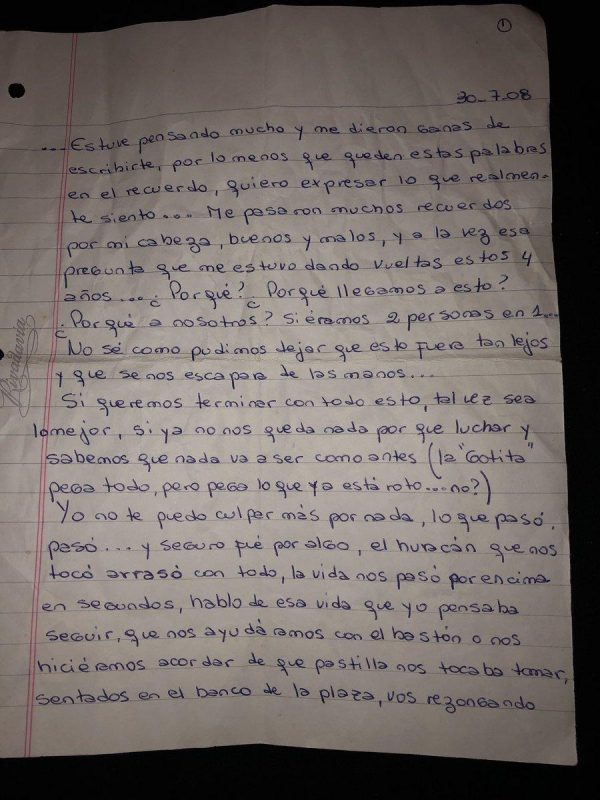 1
30-7-08
...Estuve pensando mucho y me dieron ganas de
escribirte, por lo menos que queden estas palabras
en el recuerdo, quiero expresar lo que realmen-
te siento.... Me pasaron muchos recuerdos
por mi cabeza, buenos y malos, y a la vez esa
pregunta que me estuvo dando vueltas estos 4
años.... ¿Porqué? ¿Porqué llegamos a esto?
¿Porqué a nosotros? Si éramos 2 personas en 1...
No sé como pudimos dejar que esto fuera tan lejos
y que se nos escapara de las manos...
Si queremos terminar con todo esto, tal vez sea
lo mejor, si ya no nos queda nada por que luchar y
sabemos que nada va a ser como antes (la "Gotita"
pega todo, pero pega lo que ya está roto...no?)
Yo no te puedo culpar más por nada, lo que pasó,
pasó.... y seguro fué por algo, el huracán que nos
tocó arrasó con todo, la vida nos pasó por encima
en segundos, hablo de esa vida que yo pensaba
seguir, que nos ayudáramos con el bastón o nos
hiciéramos acordar de que pastilla nos tocaba tomar,
sentados en el banco de la plaza, vos rezongando
Rivadavia